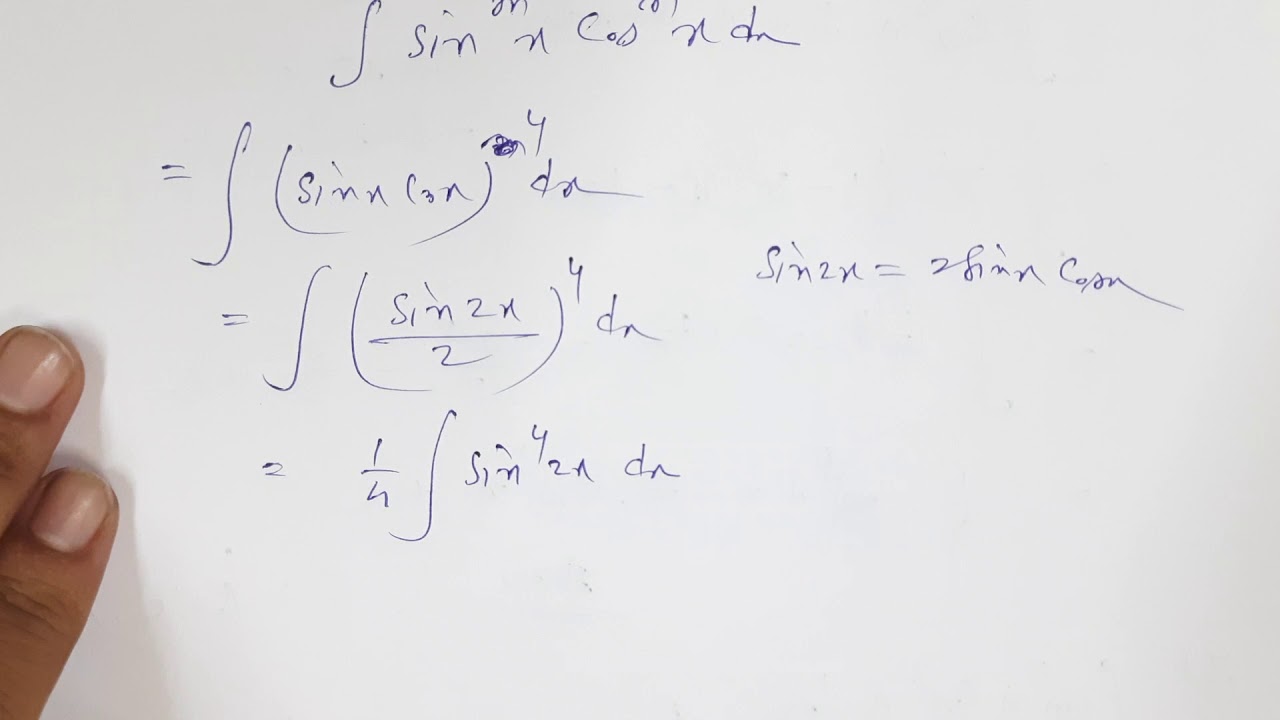 ∫ sin x cos x dx
= ∫ (sinx cosx)⁴ dx
= ∫ (sin2x/2)⁴ dx
sin2x = 2sinx cosx
= 1/4 ∫ sin⁴2x dx